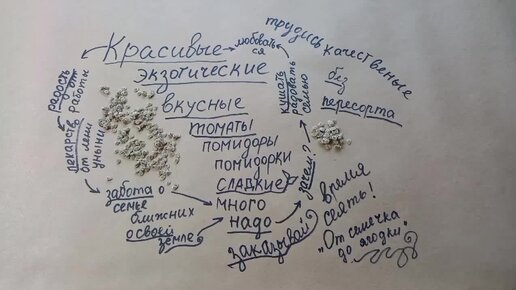 Красивые
любоваться
экзотические
вкусные
томаты
помидоры
помидорки
сладкие
много
надо
зачем?
кушать
радовать
семью
трудись качественные
без
пересорта
радость
от
работы
лекарство
от лени
уныния
забота о
семье
ближних
о своей
земле
заказывай
время
сеять!
"От семечка
до ягодки"